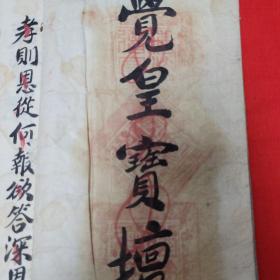 覺皇寶壇
孝則恩從何報欲答深恩